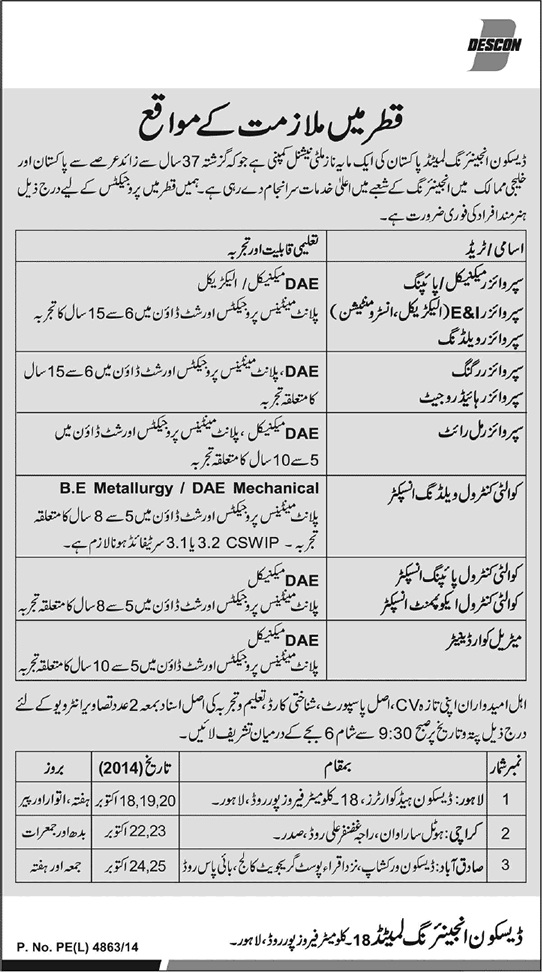 DESCON
قطر میں ملازمت کے مواقع
ڈیسکون انجینئرنگ لمیٹڈ پاکستان کی ایک مایہ ناز ملٹی نیشنل کمپنی ہے جو کہ گزشتہ 37 سال سے زائد عرصے سے پاکستان اور
خلیجی ممالک میں انجینئرنگ کے شعبے میں اعلیٰ خدمات سرانجام دے رہی ہے۔ ہمیں قطر میں پروجیکٹس کے لیے درج ذیل
ہنرمند افراد کی فوری ضرورت ہے۔
اسامی/ٹریڈ تعلیمی قابلیت اور تجربہ
سپروائزر میکنیکل/پائپنگ DAE میکنیکل/الیکٹریکل
سپروائزر E&I (الیکٹریکل، انسٹرومنٹیشن) پلانٹ مینٹیننس پروجیکٹس اور شٹ ڈاؤن میں 6 سے 15 سال کا تجربہ
سپروائزر ویلڈنگ
سپروائزر رگنگ DAE، پلانٹ مینٹیننس پروجیکٹس اور شٹ ڈاؤن میں 6 سے 15 سال
سپروائزر ہائیڈروجیٹ کا متعلقہ تجربہ
سپروائزر مل رائٹ DAE میکنیکل، پلانٹ مینٹیننس پروجیکٹس اور شٹ ڈاؤن میں
5 سے 10 سال کا متعلقہ تجربہ
کوالٹی کنٹرول ویلڈنگ انسپکٹر B.E Metallurgy / DAE Mechanical
پلانٹ مینٹیننس پروجیکٹس اور شٹ ڈاؤن میں 5 سے 8 سال کا متعلقہ
تجربہ ۔ CSWIP 3.2 یا 3.1 سرٹیفائڈ ہونا لازم ہے۔
کوالٹی کنٹرول پائپنگ انسپکٹر DAE میکنیکل
کوالٹی کنٹرول ایکوپمنٹ انسپکٹر پلانٹ مینٹیننس پروجیکٹس اور شٹ ڈاؤن میں 5 سے 8 سال کا متعلقہ تجربہ
میٹریل کوارڈینیٹر DAE میکنیکل
پلانٹ مینٹیننس پروجیکٹس اور شٹ ڈاؤن میں 5 سے 10 سال کا متعلقہ تجربہ
اہل امیدواران اپنی تازہ CV، اصل پاسپورٹ، شناختی کارڈ، تعلیم و تجربہ کی اصل اسناد بمعہ 2 عدد تصاویر انٹرویو کے لئے
درج ذیل پتہ و تاریخ پر صبح 9:30 سے شام 6 بجے کے درمیان تشریف لائیں۔
نمبر شمار بمقام تاریخ (2014) بروز
1 لاہور: ڈیسکون ہیڈ کوارٹرز، 18۔ کلومیٹر فیروز پور روڈ، لاہور۔ 18,19,20 اکتوبر ہفتہ، اتوار اور پیر
2 کراچی: ہوٹل ساراوان، راجہ غضنفر علی روڈ، صدر۔ 22,23 اکتوبر بدھ اور جمعرات
3 صادق آباد: ڈیسکون ورکشاپ، نزد اقراء پوسٹ گریجویٹ کالج، بائی پاس روڈ 24,25 اکتوبر جمعہ اور ہفتہ
ڈیسکون انجینئرنگ لمیٹڈ 18۔ کلومیٹر فیروز پور روڈ، لاہور۔
P. No. PE(L) 4863/14